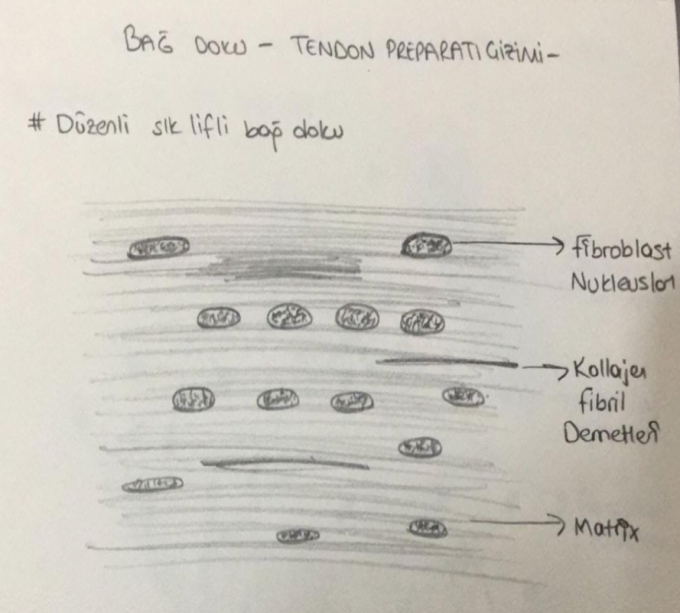 BAĞ DOKU - TENDON PREPARATI ÇİZİMİ -
# Düzenli sık lifli bağ doku
fibroblast
Nukleusları
Kollajen
fibril
Demetleri
Matrix